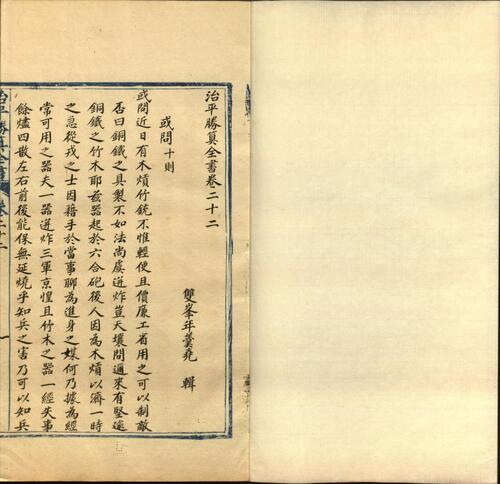 治平勝算全書卷二十二
雙峯年羹堯 輯
或問十則
或問近日有木熕竹銃不惟輕便且價廉工省用之可以制敵
否曰銅鐵之具製不如法尚虞迸炸豈天壤間邇來有堅逾
銅鐵之竹木耶茲器起於六合砲後人因為木熕以濟一時
之急從戎之士因藉手於當事聊為進身之媒何乃據為經
常可用之器夫一器迸炸三軍京惶且竹木之器一經失事
餘燼四散左右前後能保無延燒乎知兵之害乃可以知兵
治平勝算全書 卷二十二
一